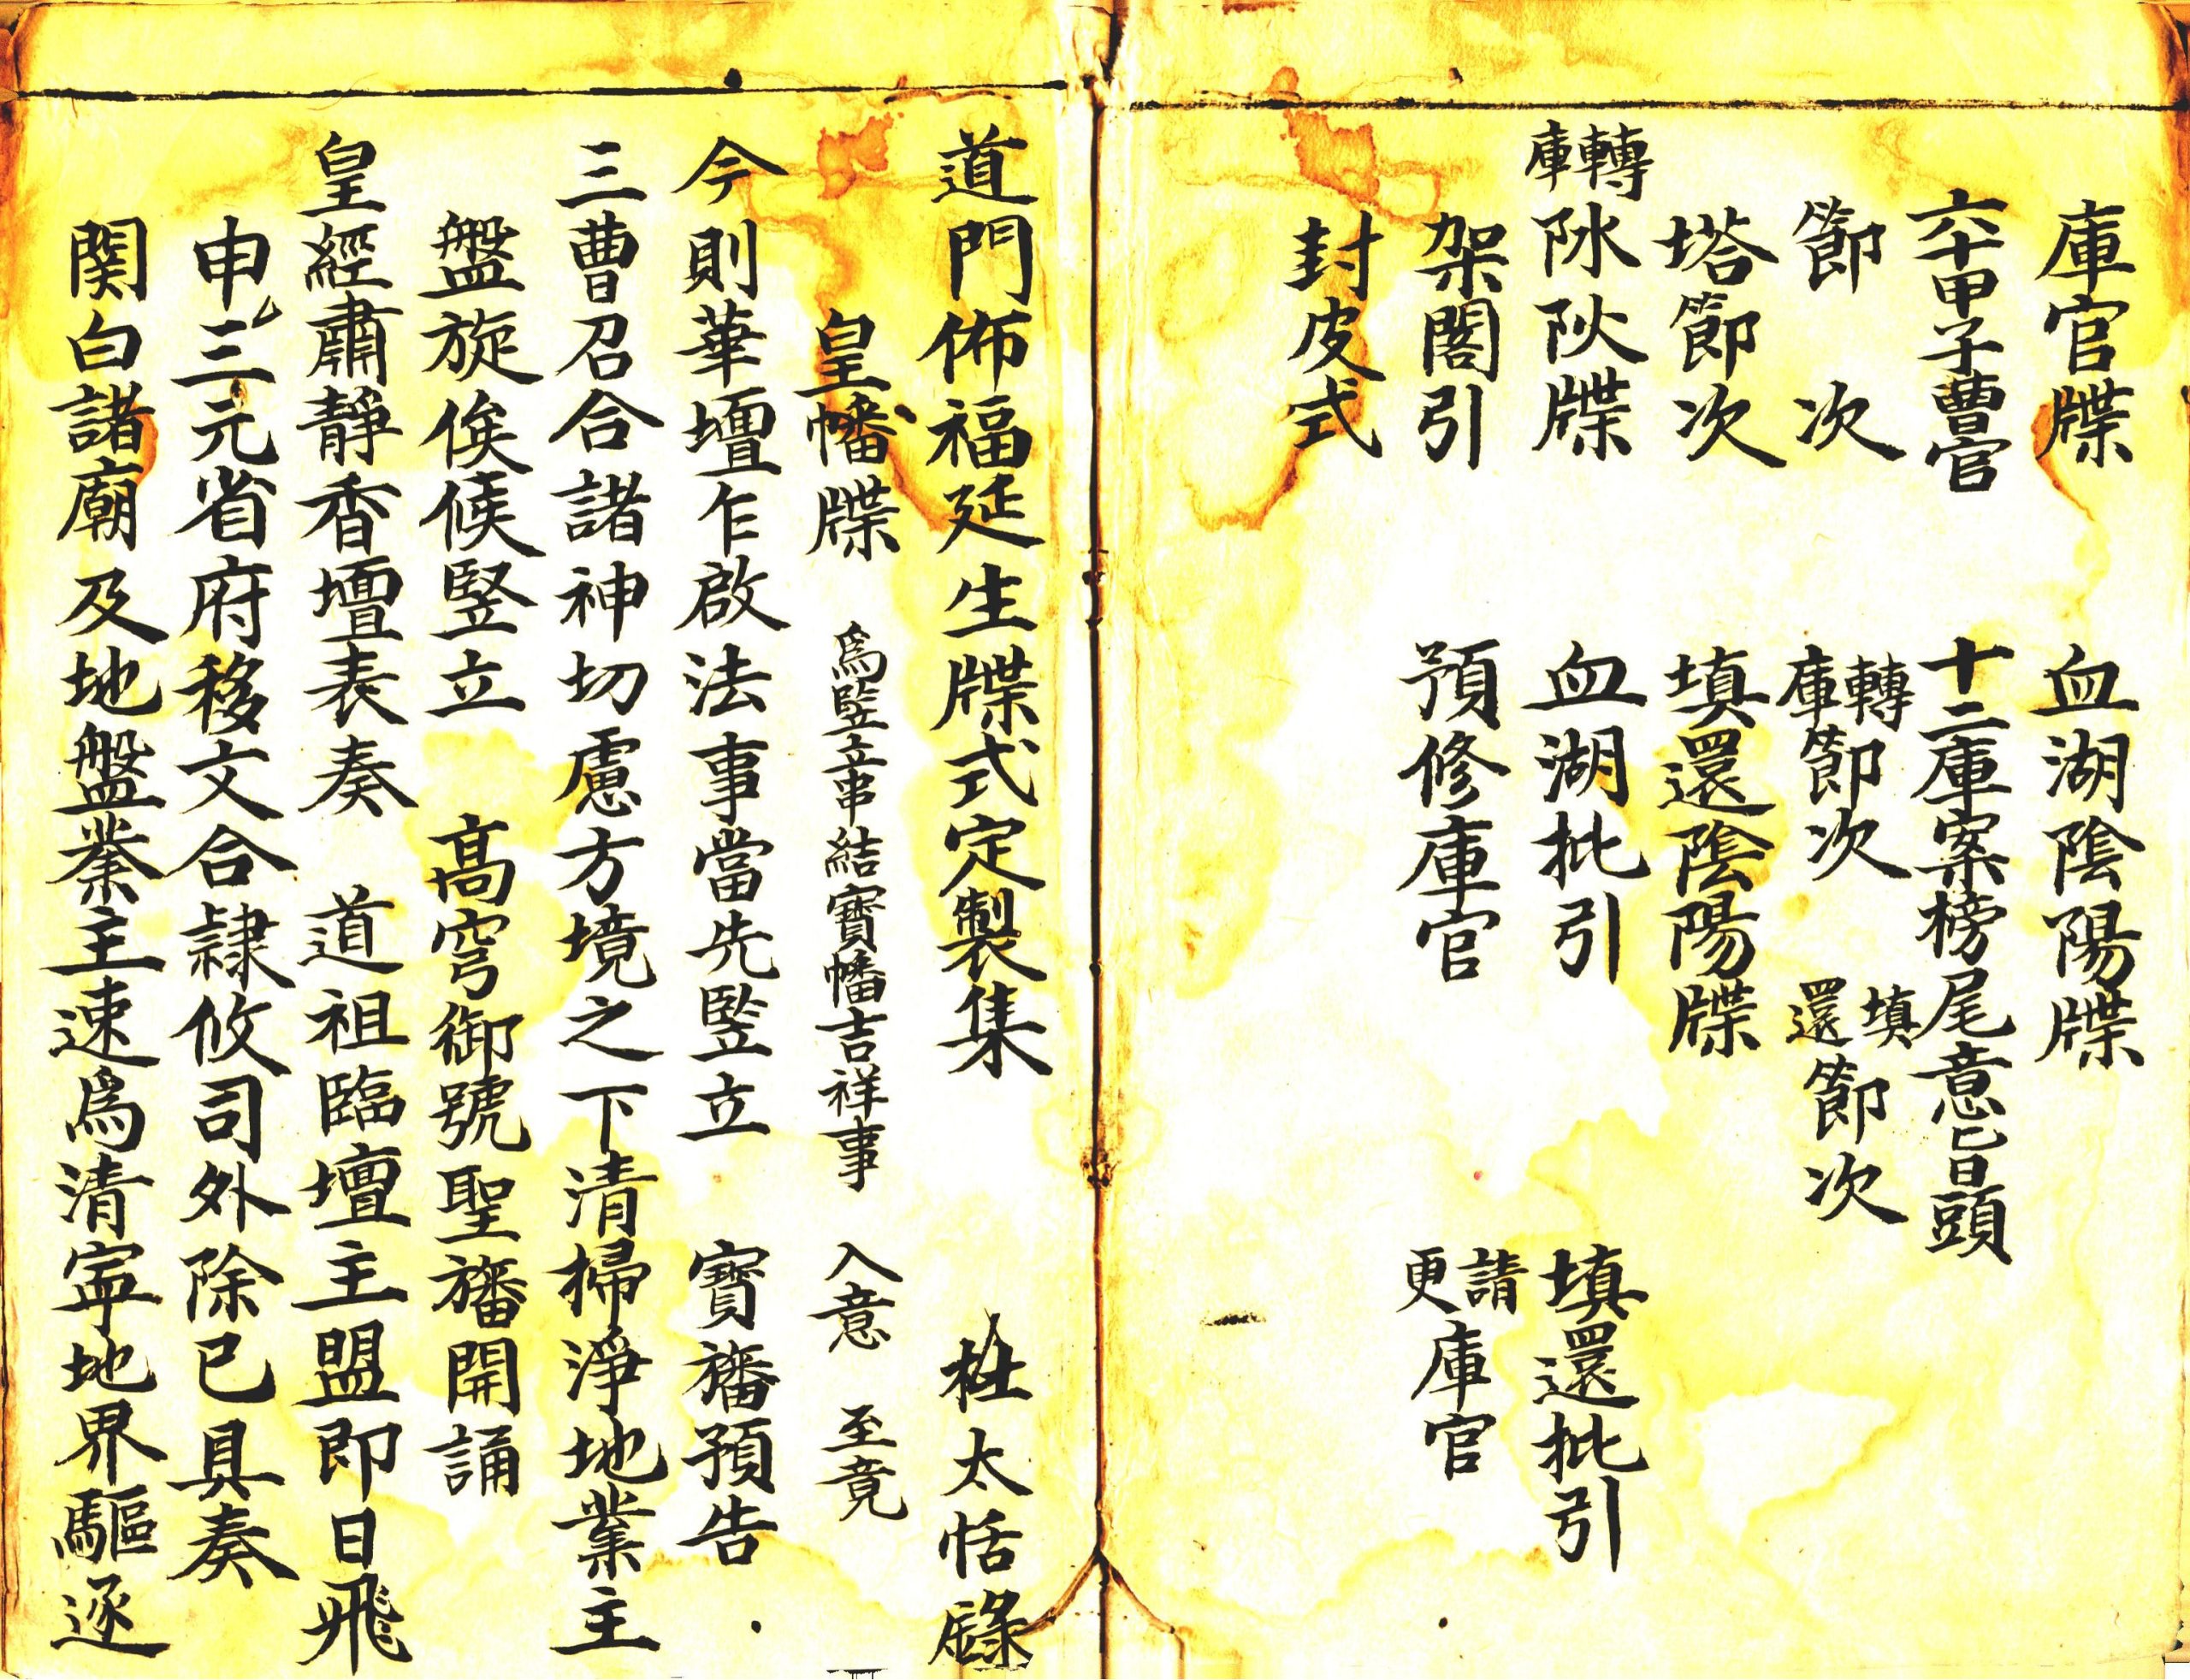 庫官牒　血湖陰陽牒
六十甲子曹官　十二庫案榜尾意旨頭
節次　轉庫節次　填還節次
塔節次　填還陰陽牒
轉庫阥阦牒　血湖批引　填還批引
架閣引　預修庫官　請更庫官
封皮式
道門佈福延生牒式定製集　杜太恬錄
皇幡牒　爲竪立帛結寶幡吉祥事　入意　至竟
今則華壇乍啟法事當先竪立　寶旛預告
三曹召合諸神切慮方境之下清掃淨地業主
盤旋俟候竪立　高穹御號聖旛開誦
皇經肅靜香壇表奏　道祖臨壇主盟即日飛
申三元省府移文合隷攸司外除已具奏
関白諸廟及地盤業主速爲清寧地界驅逐